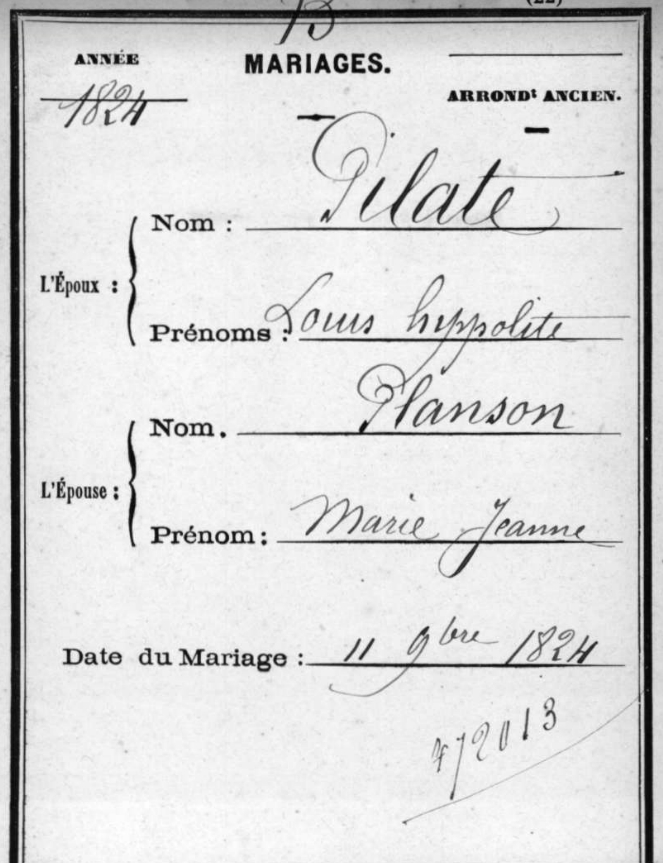 (22)
B
ANNÉE
MARIAGES.
1824
ARRONDt ANCIEN.
L'Époux :
Nom : Pilate
Prénoms : Louis hyppolite
L'Épouse :
Nom. Planson
Prénom : Marie Jeanne
Date du Mariage : 11 9bre 1824
472013